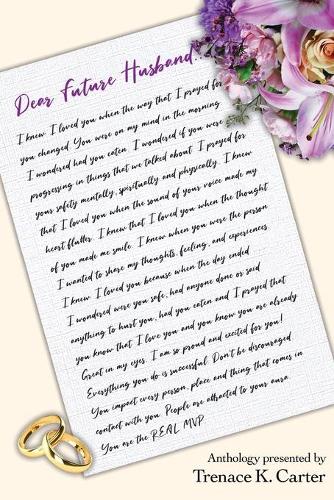 Dear Future Husband...
I knew I loved you when the way that I prayed for
you changed. You were on my mind in the morning
I wondered had you eaten. I wondered if you were
progressing in things that we talked about. I prayed for
your safety mentally, spiritually and physically. I knew
that I loved you when the sound of your voice made my
heart flutter. I knew that I loved you when the thought
of you made me smile. I knew when you were the person
I wanted to share my thoughts, feeling, and experiences.
I knew I loved you because when the day ended
I wondered were you safe, had anyone done or said
anything to hurt you, had you eaten and I prayed that
you know that I love you and you know you are already
Great in my eyes. I am so proud and excited for you!
Everything you do is successful. Don't be discouraged.
You impact every person, place and thing that comes in
contact with you. People are attracted to your aura.
You are the R.E.A.L. MVP
Anthology presented by
Trenace K. Carter